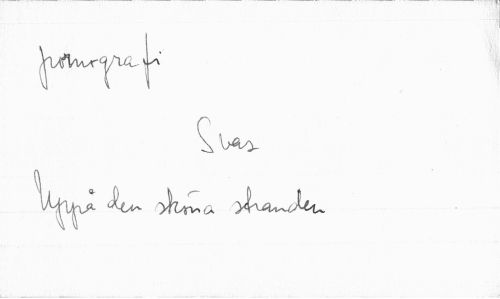 pornografi
Svas
Uppå den sköna stranden